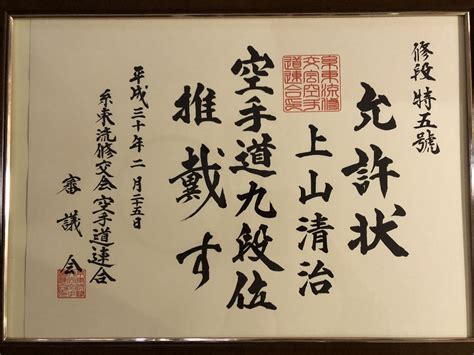 修段特五號
允許状
上山清治
空手道九段位
推戴す
平成三十年二月二十五日
糸東流修交会空手道連合
審議会